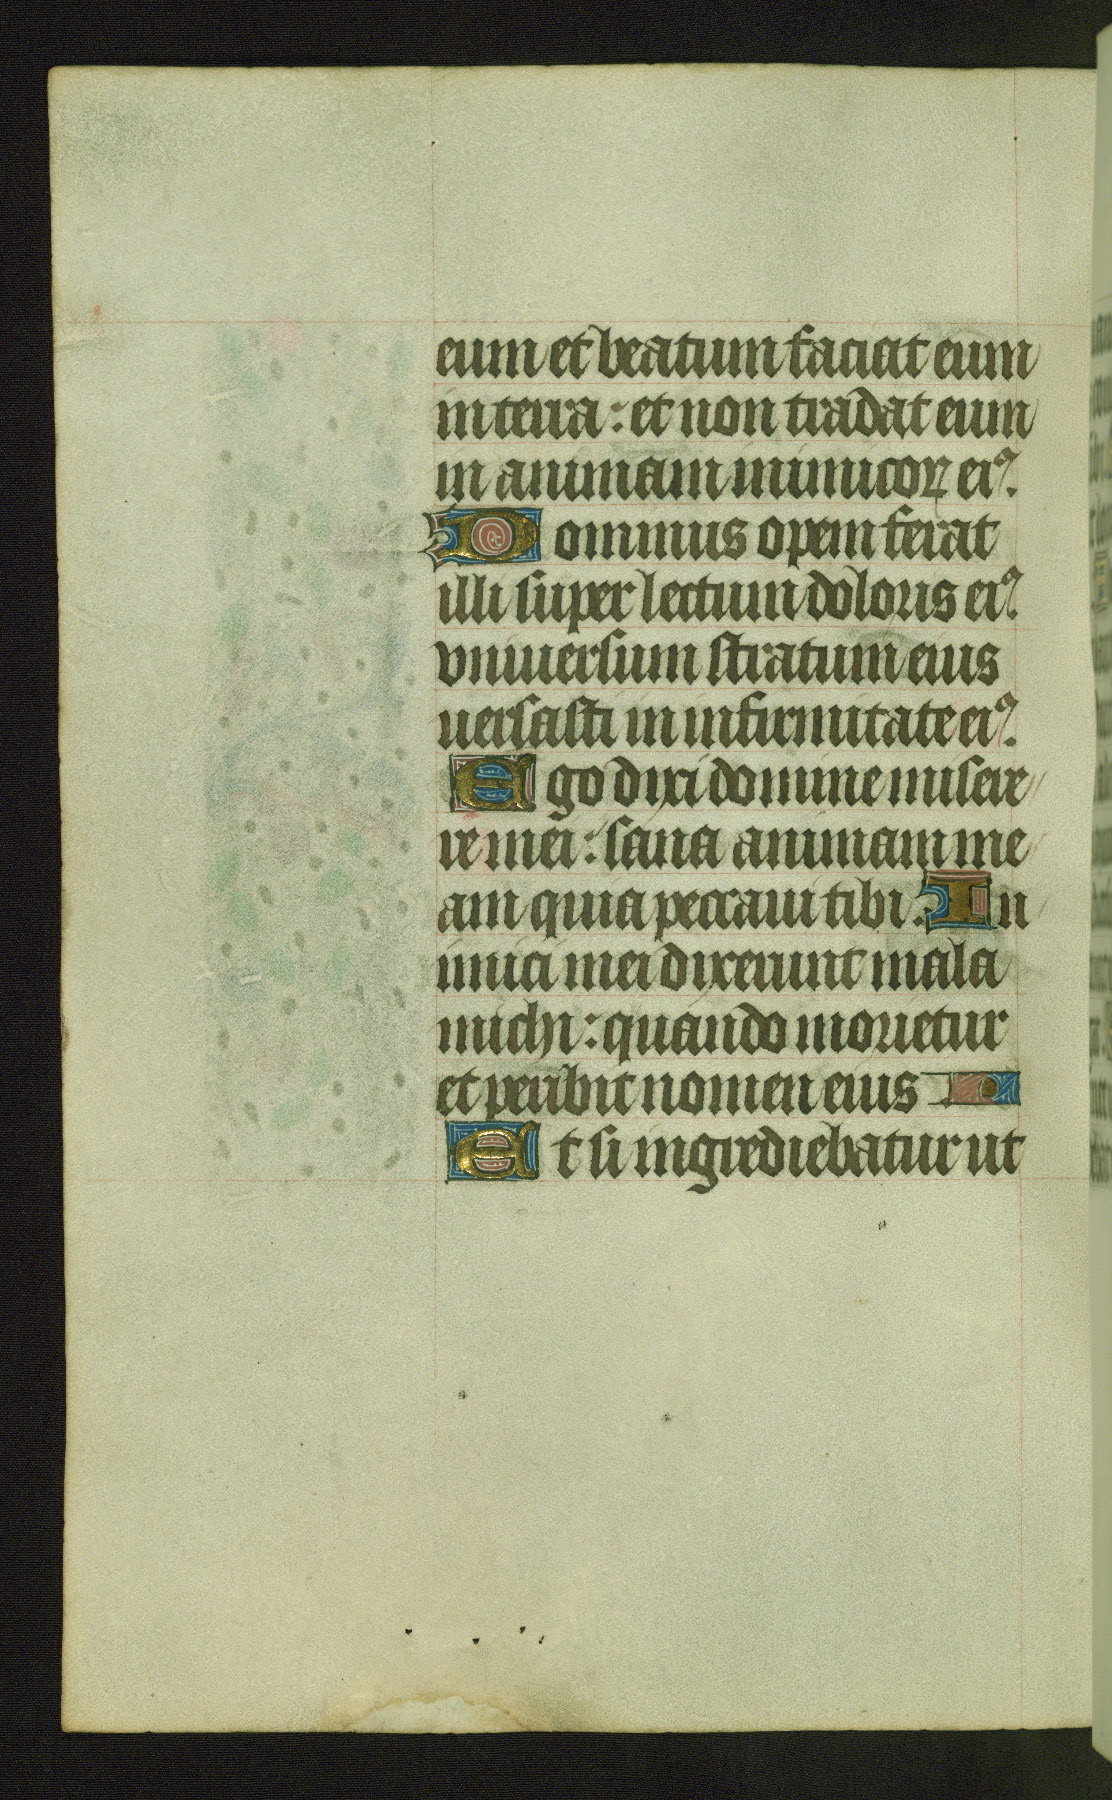 eum et beatum faciat eum
in terra : et non tradat eum
in animam inimicoꝝ eiꝰ.
Dominus opem ferat
illi super lectum doloris eiꝰ.
vniuersum stratum eius
uersasti in infirmitate eiꝰ.
Ego dixi domine misere
re mei : sana animam me
am quia peccaui tibi. In
imici mei dixerunt mala
michi : quando morietur
et peribit nomen eius
Et si ingrediebatur ut